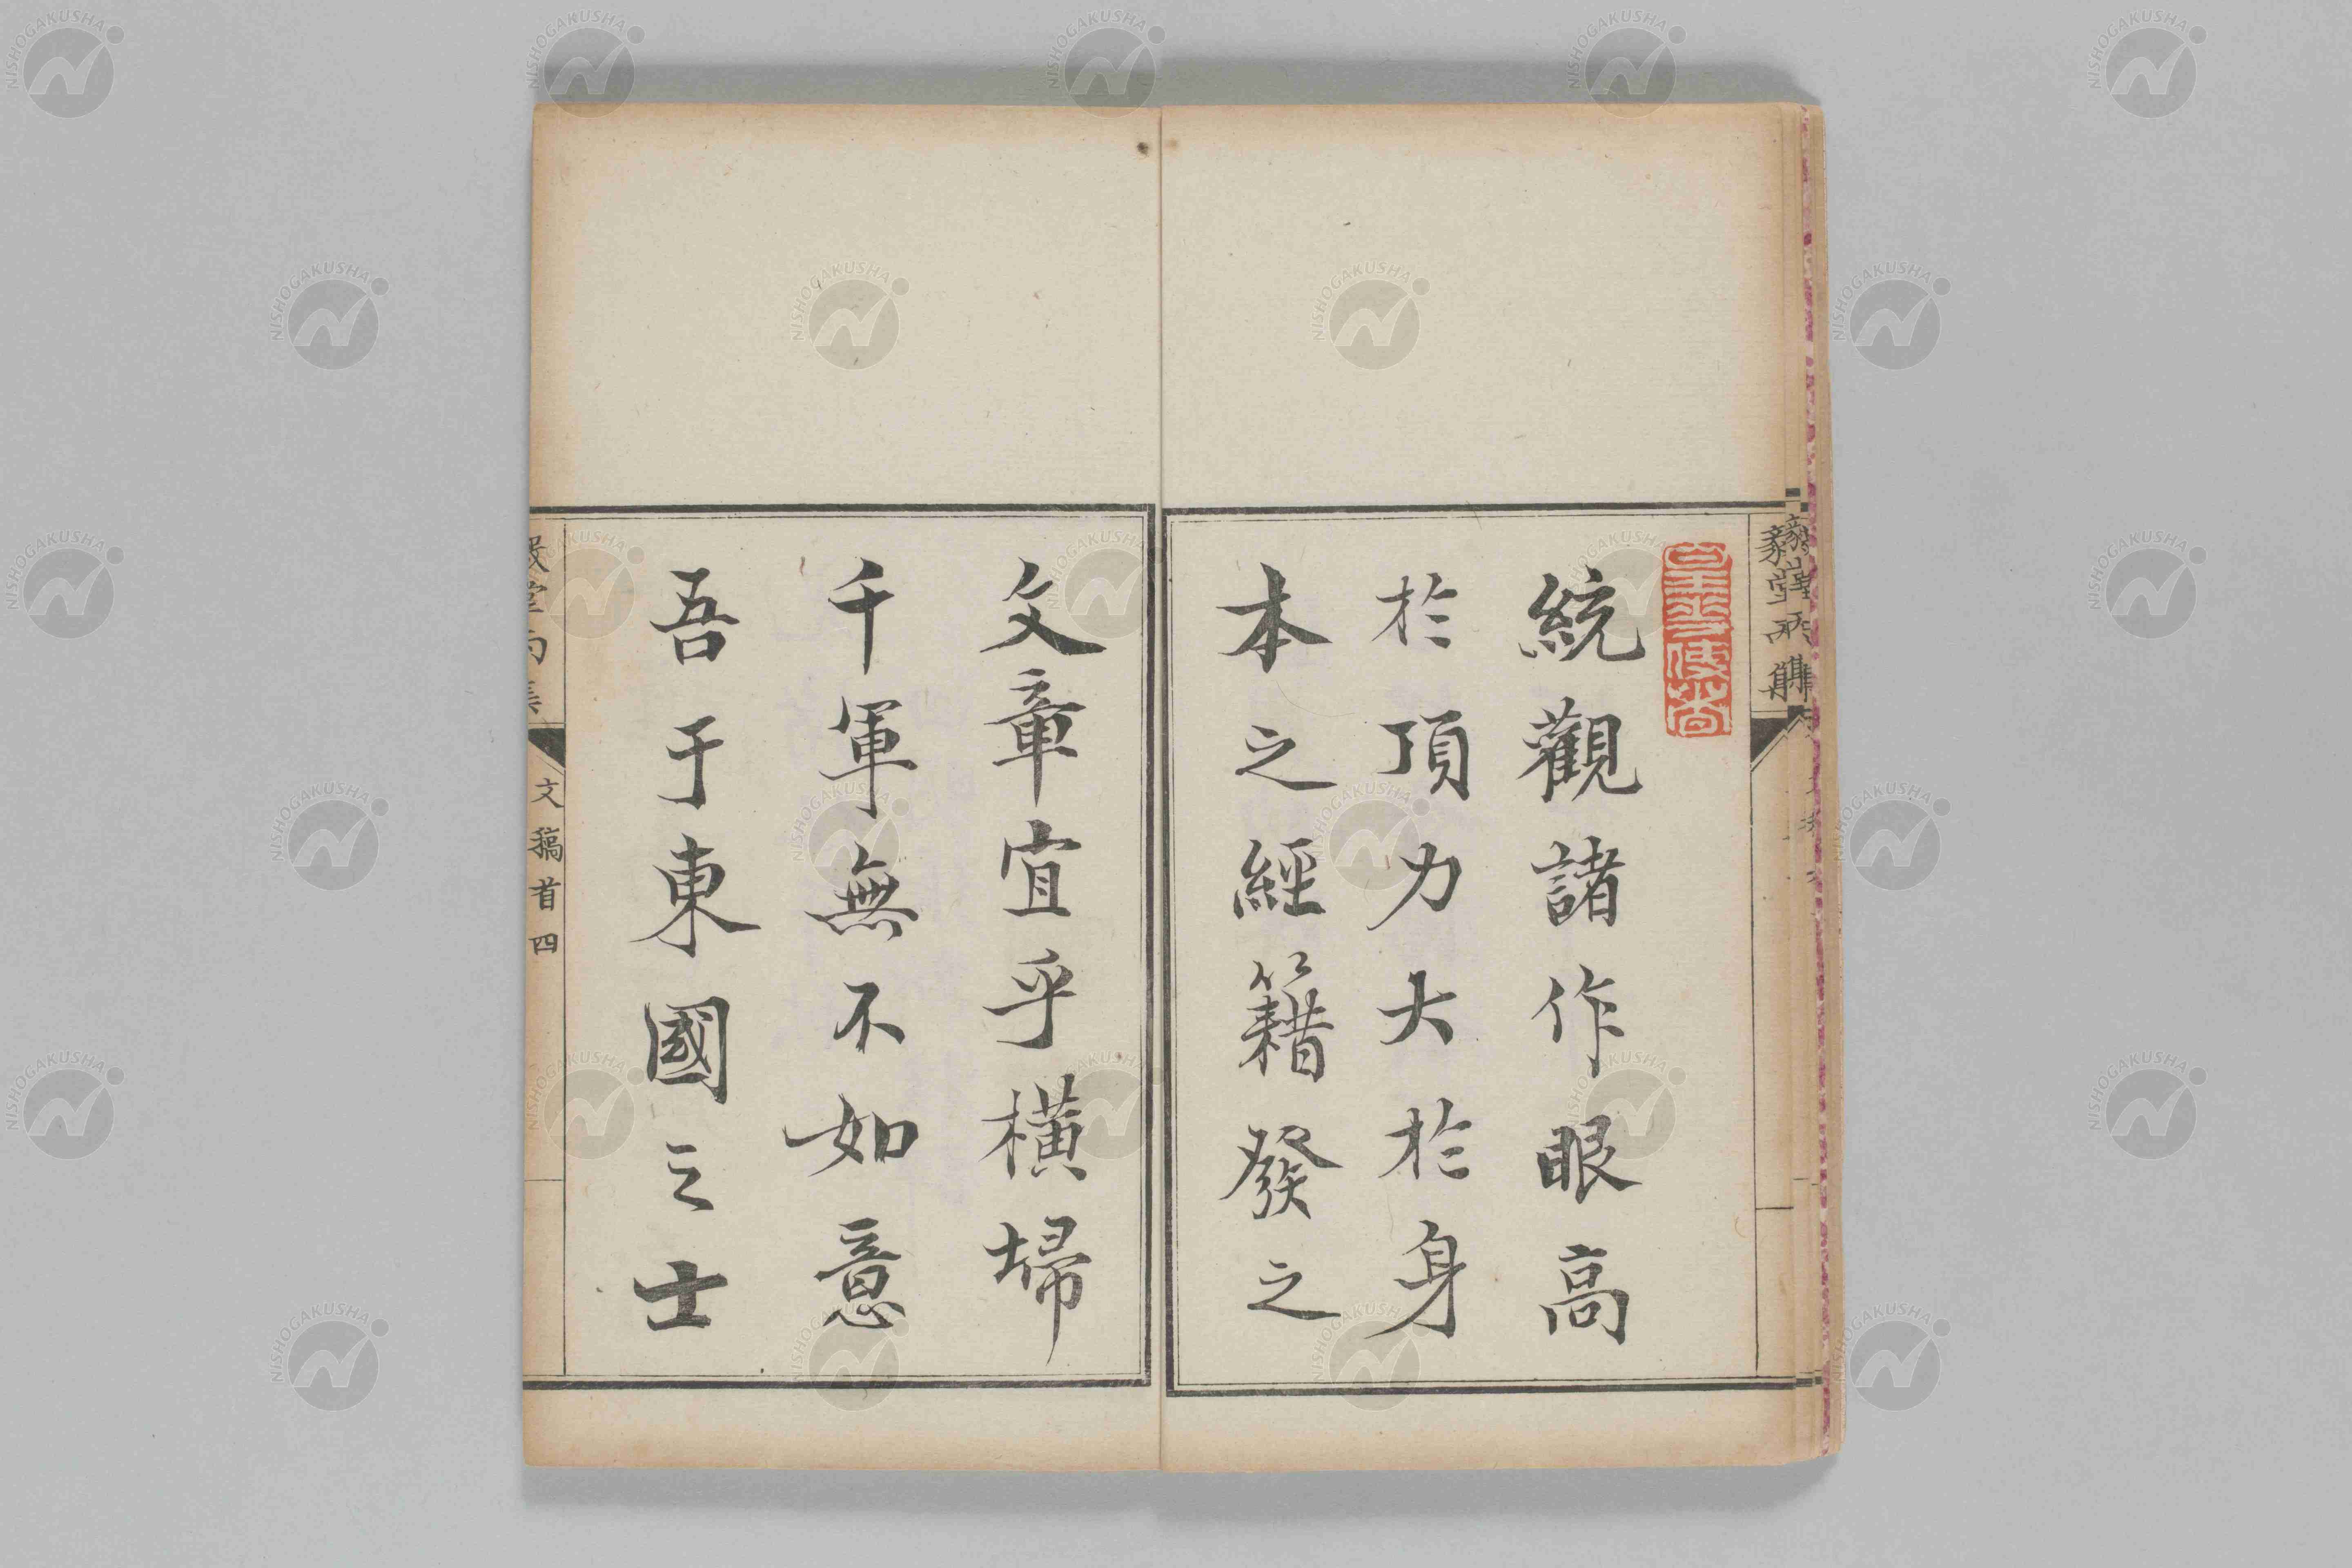 毅堂丙集
統觀諸作眼高
於頂力大於身
本之經籍發之
文章宜乎橫埽
千軍無不如意
吾于東國之士
文稿首四
NISHOGAKUSHA